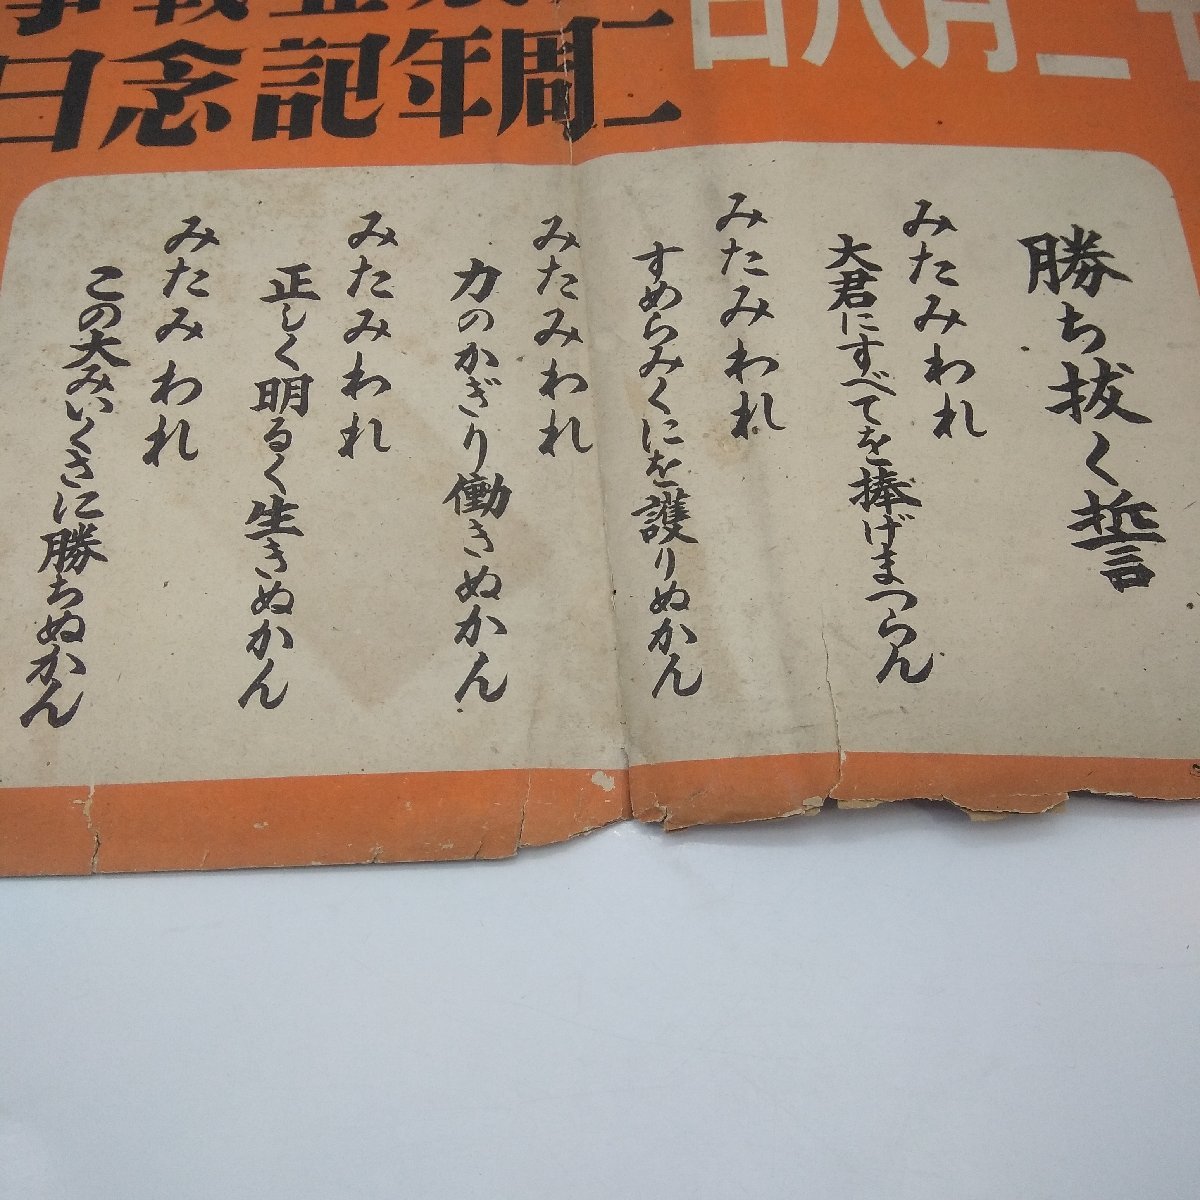 十二月八日
二周年記念日
勝ち抜く誓
みたみわれ
大君にすべてを捧げまつらん
みたみわれ
すめらみくにを護りぬかん
みたみわれ
力のかぎり働きぬかん
みたみわれ
正しく明るく生きぬかん
みたみわれ
この大みいくさに勝ちぬかん